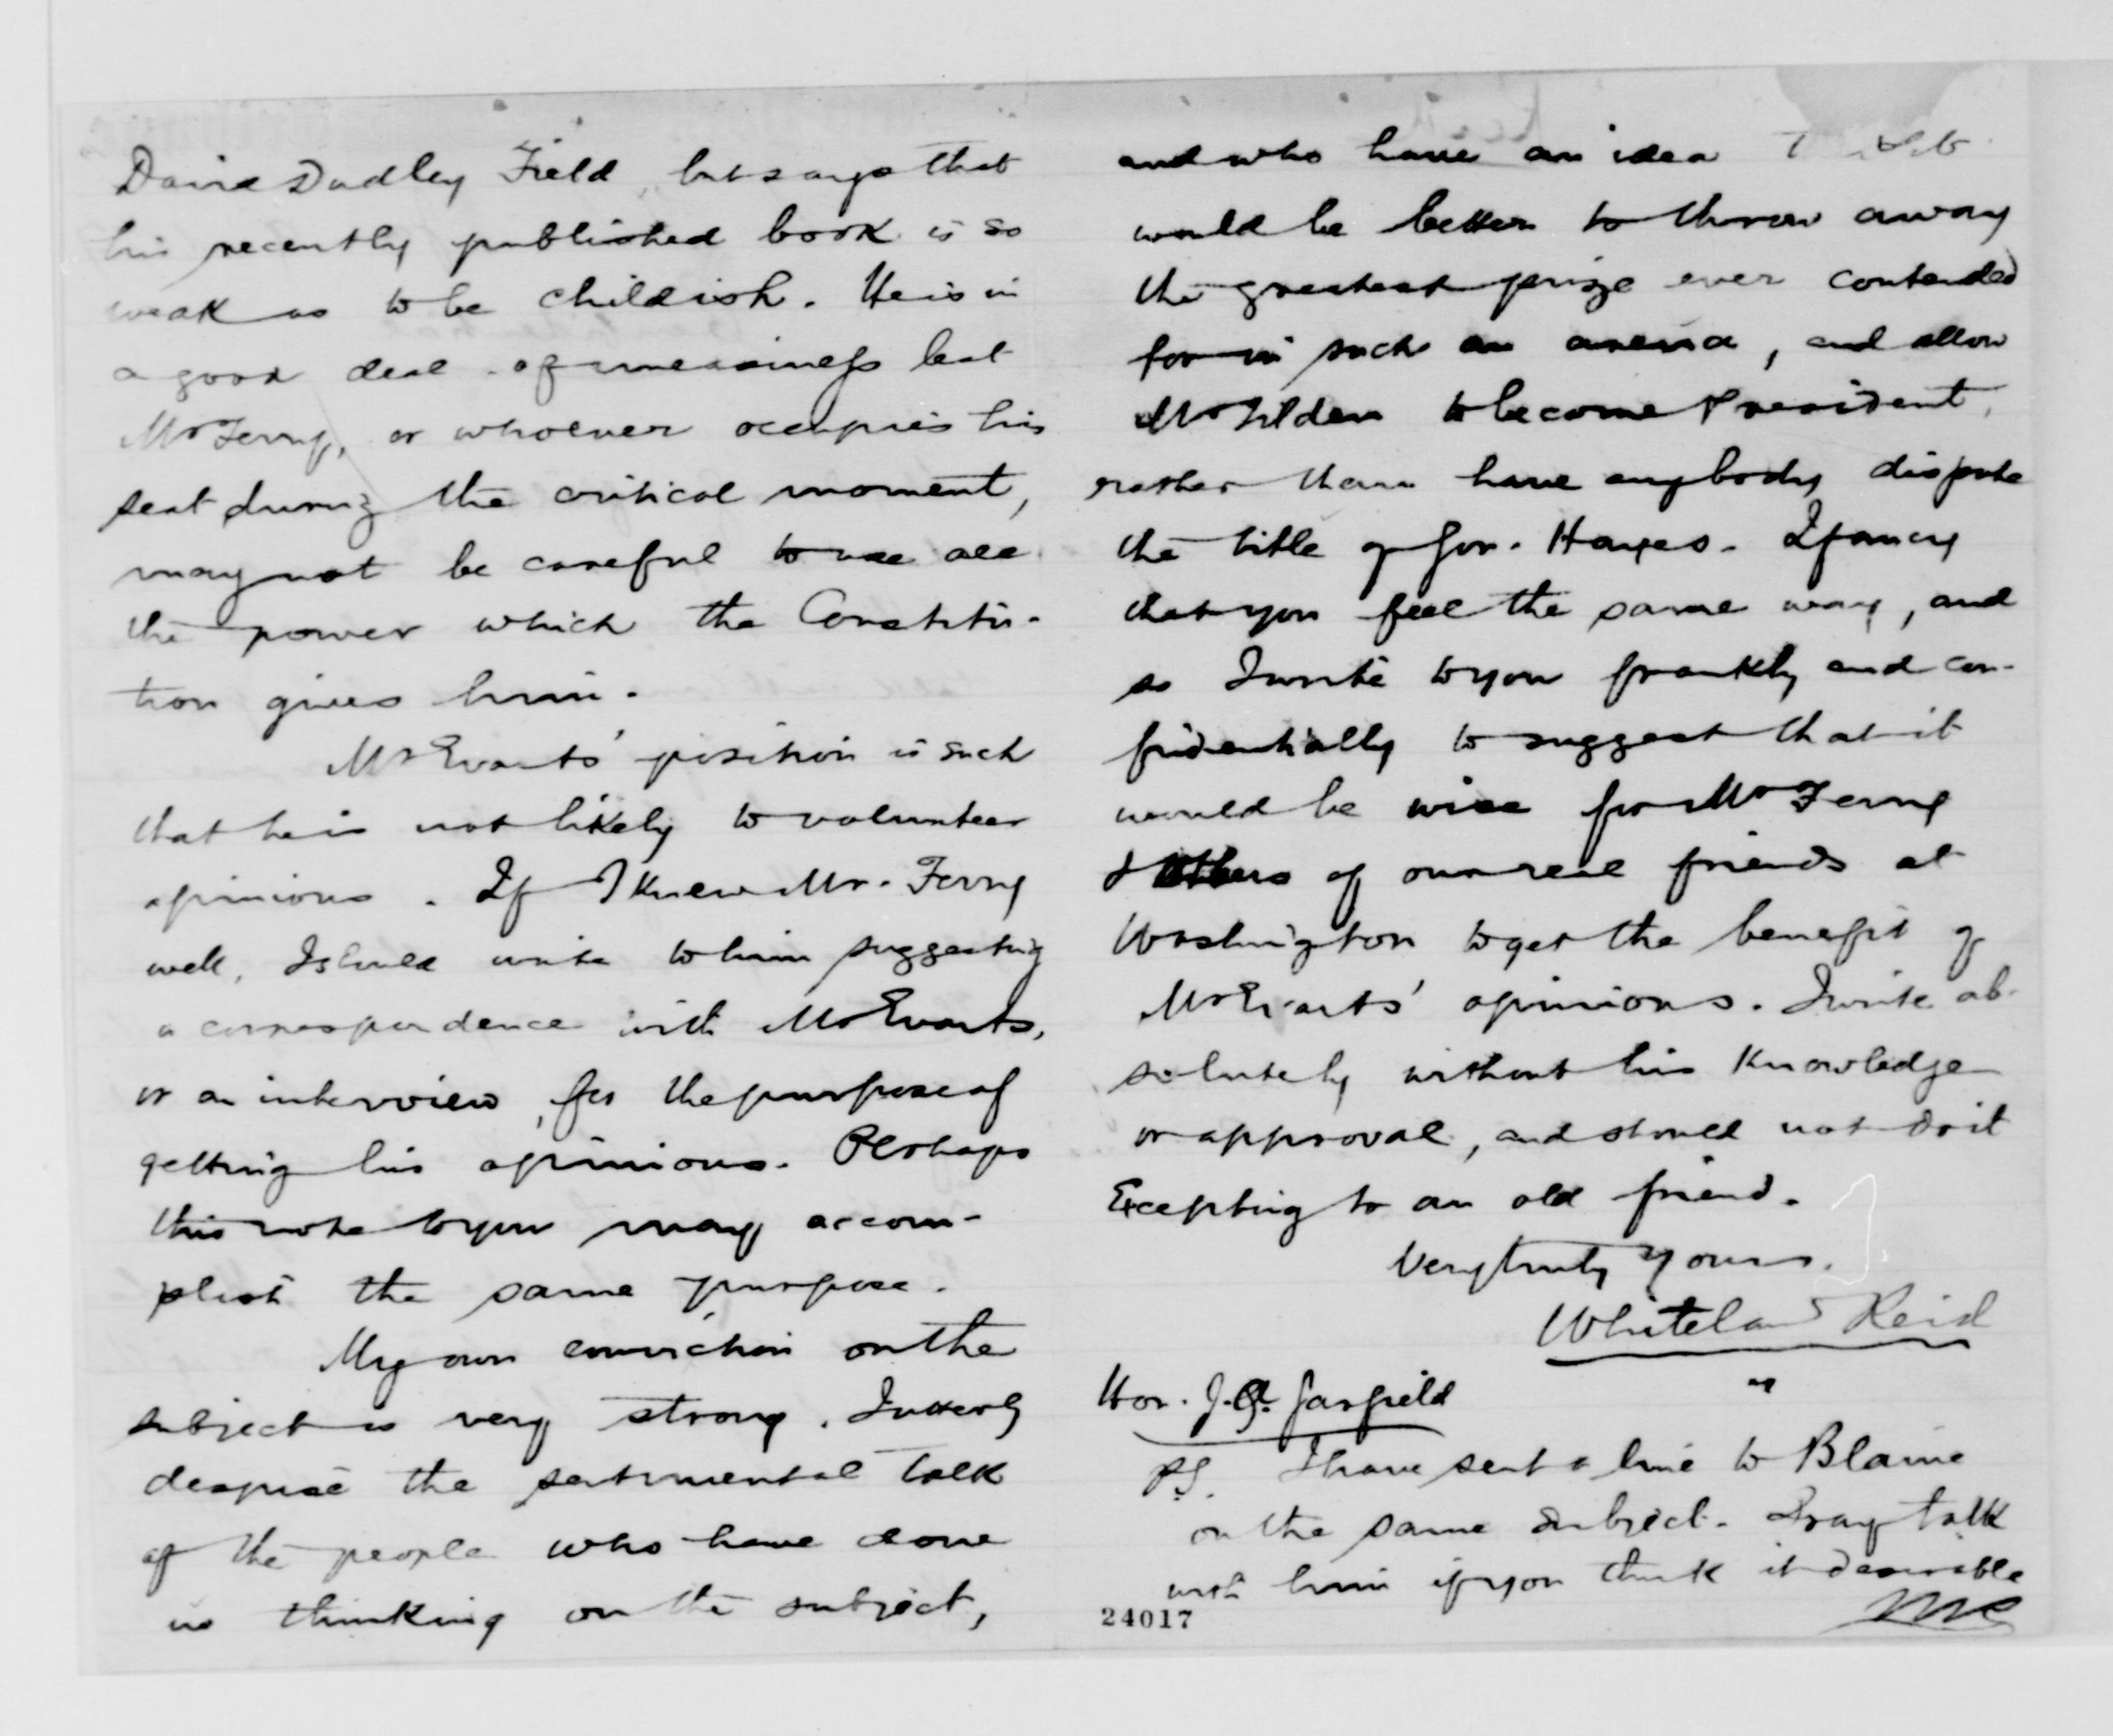 David Dudley Field, but says that
his recently published book is so
weak as to be childish. He is in
a good deal of uneasiness lest
Mr Ferry, or whoever occupies his
seat during the critical moment,
may not be careful to use all
the power which the Constitu-
tion gives him.
Mr Evarts' position is such
that he is not likely to volunteer
opinions. If I knew Mr. Ferry
well, I should write to him suggesting
a correspondence with Mr Evarts,
or an interview, for the purpose of
getting his opinions. Perhaps
this note to you may accom-
plish the same purpose.
My own conviction on the
subject is very strong. I utterly
despise the sentimental talk
of the people who have done
no thinking on the subject,
and who have an idea
would be better to throw away
the greatest prize ever contended
for in such an arena, and allow
Mr Tilden to become President,
rather than have anybody dispute
the title of Gov. Hayes. I fancy
that you feel the same way, and
so I write to you frankly and con-
fidentially to suggest that it
would be wise for Mr Ferry
& others of our real friends at
Washington to get the benefit of
Mr Evarts' opinions. I write ab-
solutely without his knowledge
or approval, and should not do it
Excepting to an old friend.
Very truly yours,
Whitelaw Reid
Hon. J. A. Garfield
P.S. I have sent a line to Blaine
on the same subject. Pray talk
with him if you think it desirable
24017